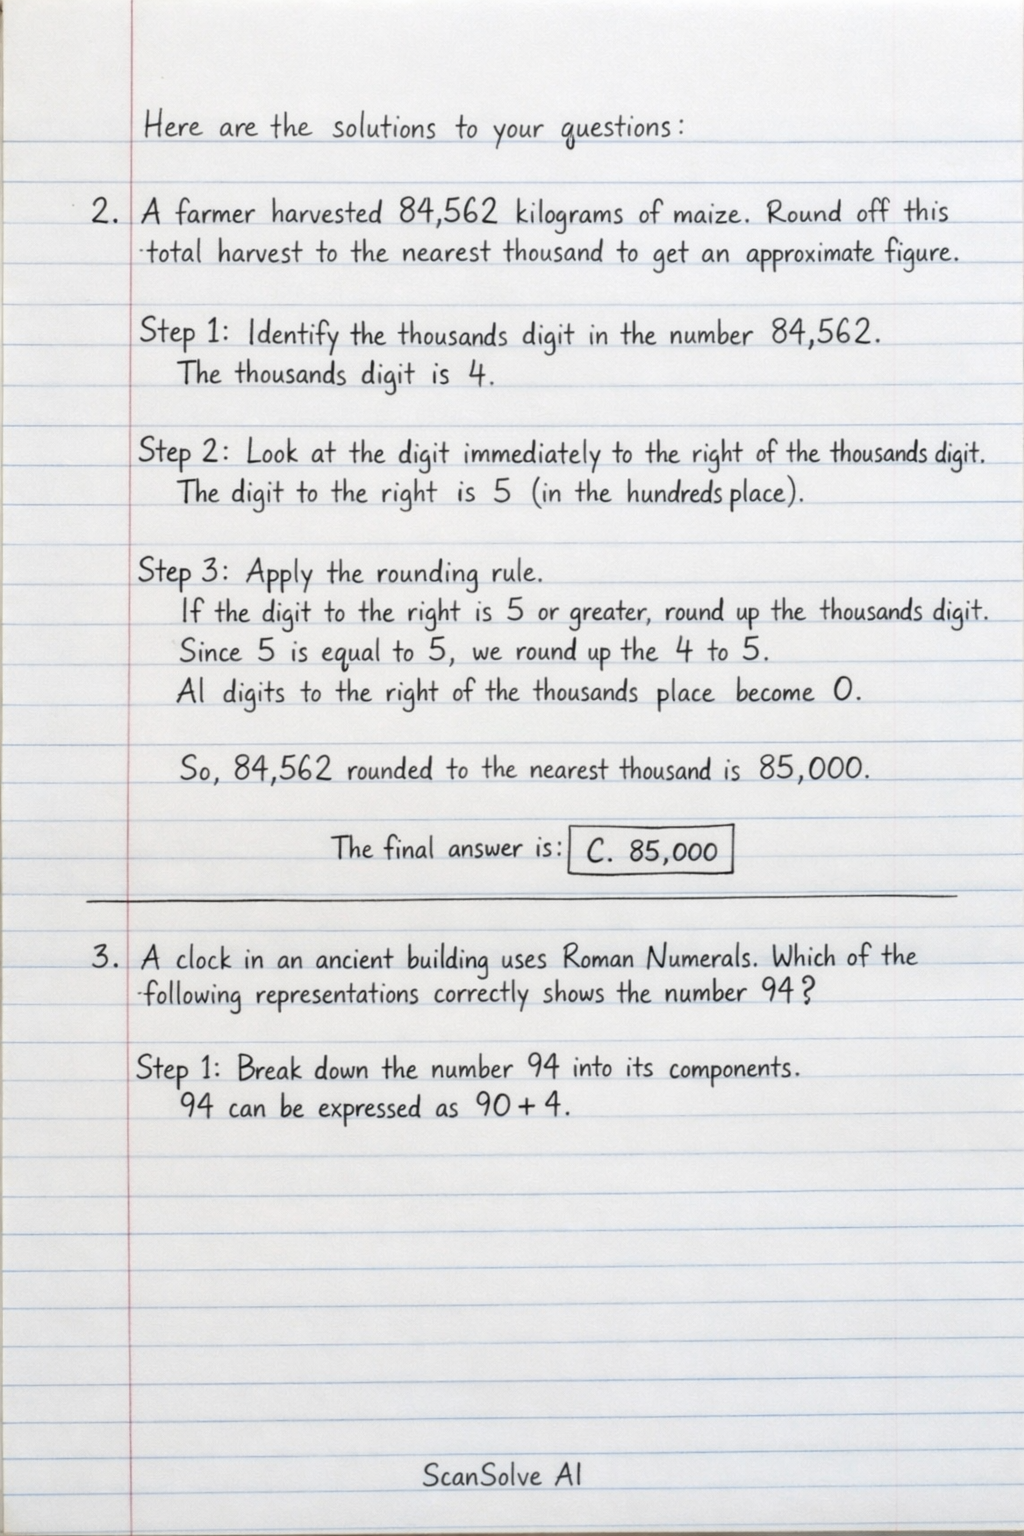 Here are the solutions to your questions:
2. A farmer harvested 84,562 kilograms of maize. Round off this
total harvest to the nearest thousand to get an approximate figure.
Step 1: Identify the thousands digit in the number 84,562.
The thousands digit is 4.
Step 2: Look at the digit immediately to the right of the thousands digit.
The digit to the right is 5 (in the hundreds place).
Step 3: Apply the rounding rule.
If the digit to the right is 5 or greater, round up the thousands digit.
Since 5 is equal to 5, we round up the 4 to 5.
Al digits to the right of the thousands place become 0.
So, 84,562 rounded to the nearest thousand is 85,000.
The final answer is: C. 85,000
3. A clock in an ancient building uses Roman Numerals. Which of the
following representations correctly shows the number 94?
Step 1: Break down the number 94 into its components.
94 can be expressed as 90 + 4.
ScanSolve AI